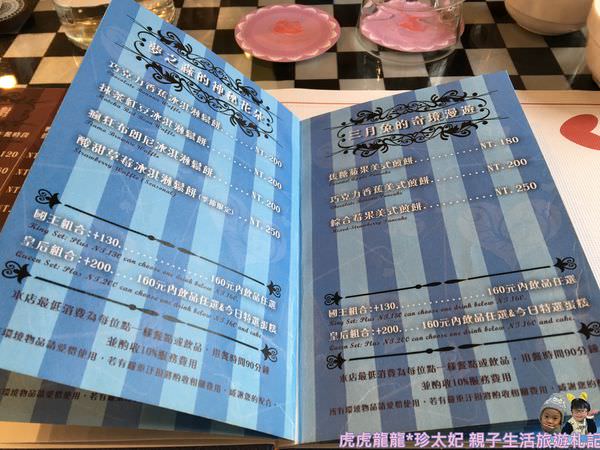 夢之森的神祕花朵
巧克力香蕉冰淇淋鬆餅............NT. 200
抹茶紅豆冰淇淋鬆餅............NT. 200
瘋狂布朗尼冰淇淋鬆餅............NT. 200
酸甜草莓冰淇淋鬆餅(季節限定)...NT. 250
Strawberry Waffle (Seasonal)
國王組合:+130............160元內飲品任選
King Set: Plus NT.130 can choose one drink below NT.160.
皇后組合:+200......160元內飲品任選&今日特選蛋糕
Queen Set: Plus NT.200 can choose one drink below NT.160 and cake.
本店最低消費為每位點一樣餐點或飲品，用餐時間90分鐘
並酌收10%服務費用
三月兔的奇境漫遊
焦糖蘋果美式煎餅............NT. 180
巧克力香蕉美式煎餅............NT. 200
綜合莓果美式煎餅............NT. 250
國王組合:+130............160元內飲品任選
King Set: Plus NT.130 can choose one drink below NT.160.
皇后組合:+200......160元內飲品任選&今日特選蛋糕
Queen Set: Plus NT.200 can choose one drink below NT.160 and cake.
本店最低消費為每位點一樣餐點或飲品，用餐時間90分鐘
並酌收10%服務費用
虎虎龍龍*珍太妃 親子生活旅遊札記